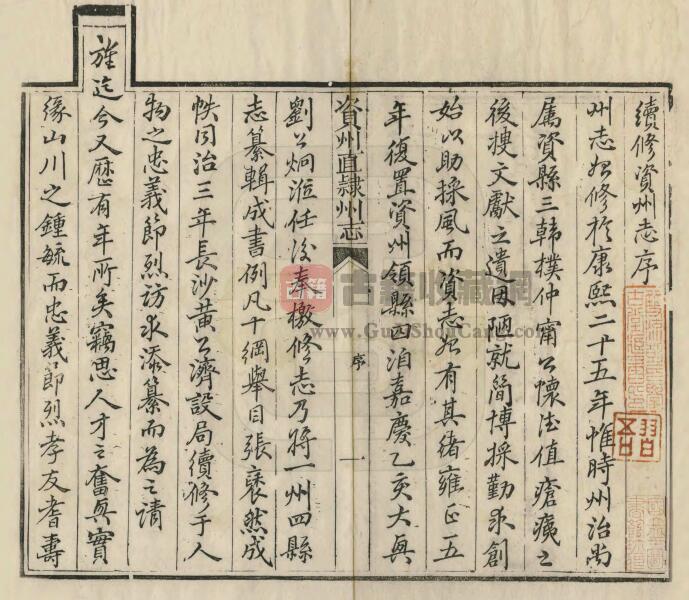 續修資州志序
州志始修於康熙二十五年惟時州治尚
屬資縣三韓樸仲甯公懷德值瘡痍之
後搜文獻之遺因陋就簡博採勤求創
始以助採風而資志始有其緒雍正五
年復置資州領縣四洎嘉慶乙亥大興
資州直隸州志
序
一
劉公炯涖任後奉檄修志乃將一州四縣
志纂輯成書例凡十綱舉目張裒然成
帙同治三年長沙黃公濟設局續修于人
物之忠義節烈訪求添纂而為之請
旌迄今又歷有年所矣竊思人才之奮興實
緣山川之鍾毓而忠義節烈孝友耆壽
古籍 古籍收藏網
www.GuJiShouCang.com